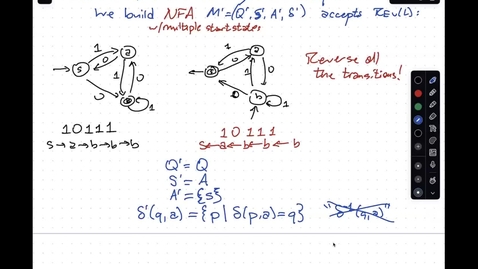 we build NFA M'=(Q', S', A', δ') accepts REV(L):
w/multiple start states
1
0
s
a
1
0
0
1
1
0
a
1
0
0
b
1
Reverse all
the transitions!
10111
s→a→b→b→b
10111
s←a←b←b←b
Q' = Q
S' = A
A' = {s}
δ'(q,a) = {p | δ(p,a)=q}
"δ⁻¹(q,a)"